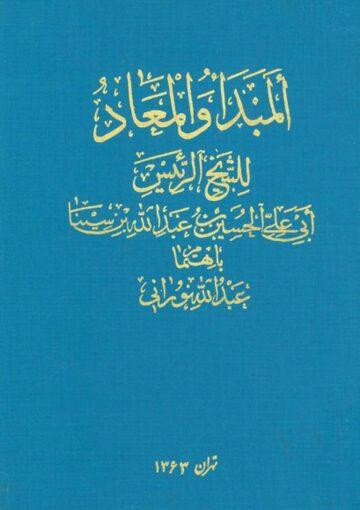 ألمبدأ والمعاد
للشيخ الرئيس
أبي علي الحسين بن عبد الله بن سينا
باهتمام
عبد الله نوراني
تهران ۱۳۶۳